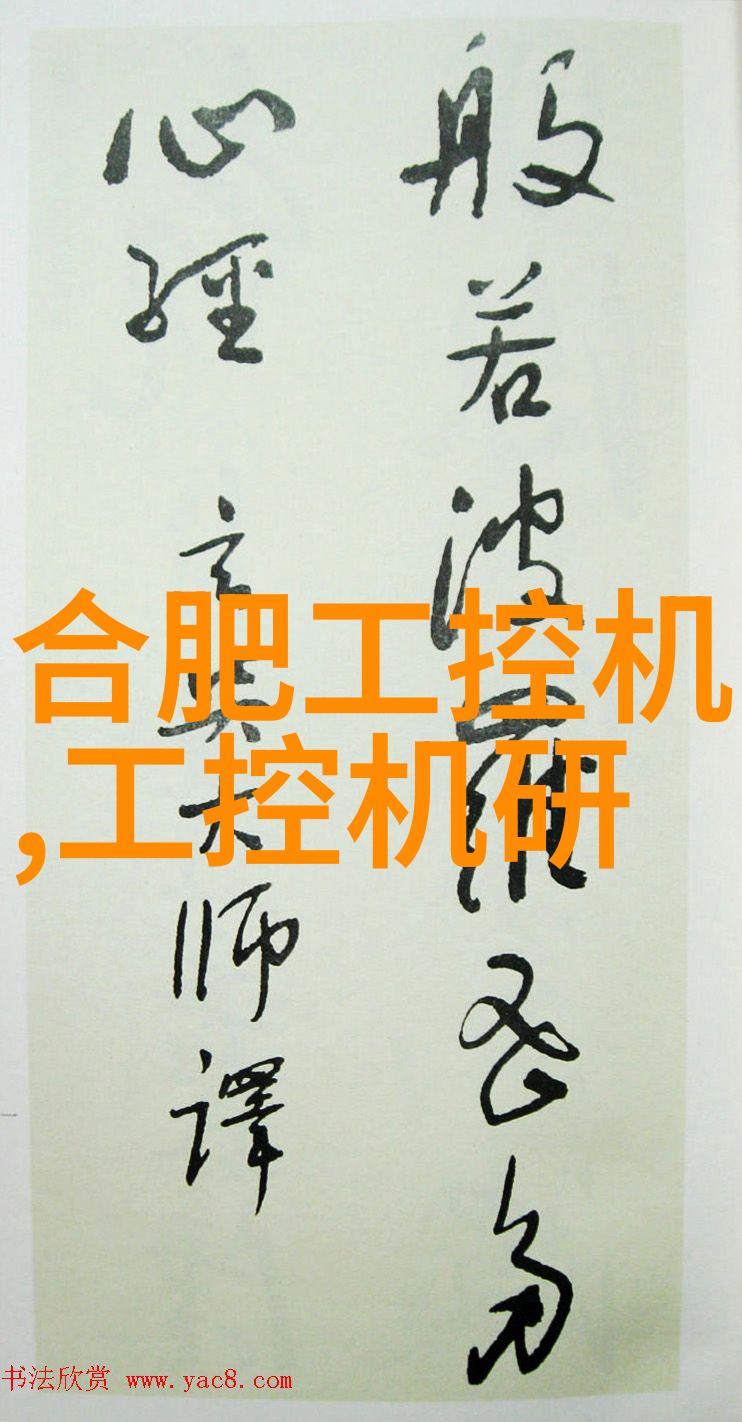 般若波羅密多
心經 玄奘大師譯
合肥工控机
,工控机研
书法欣赏 www.yac8.com